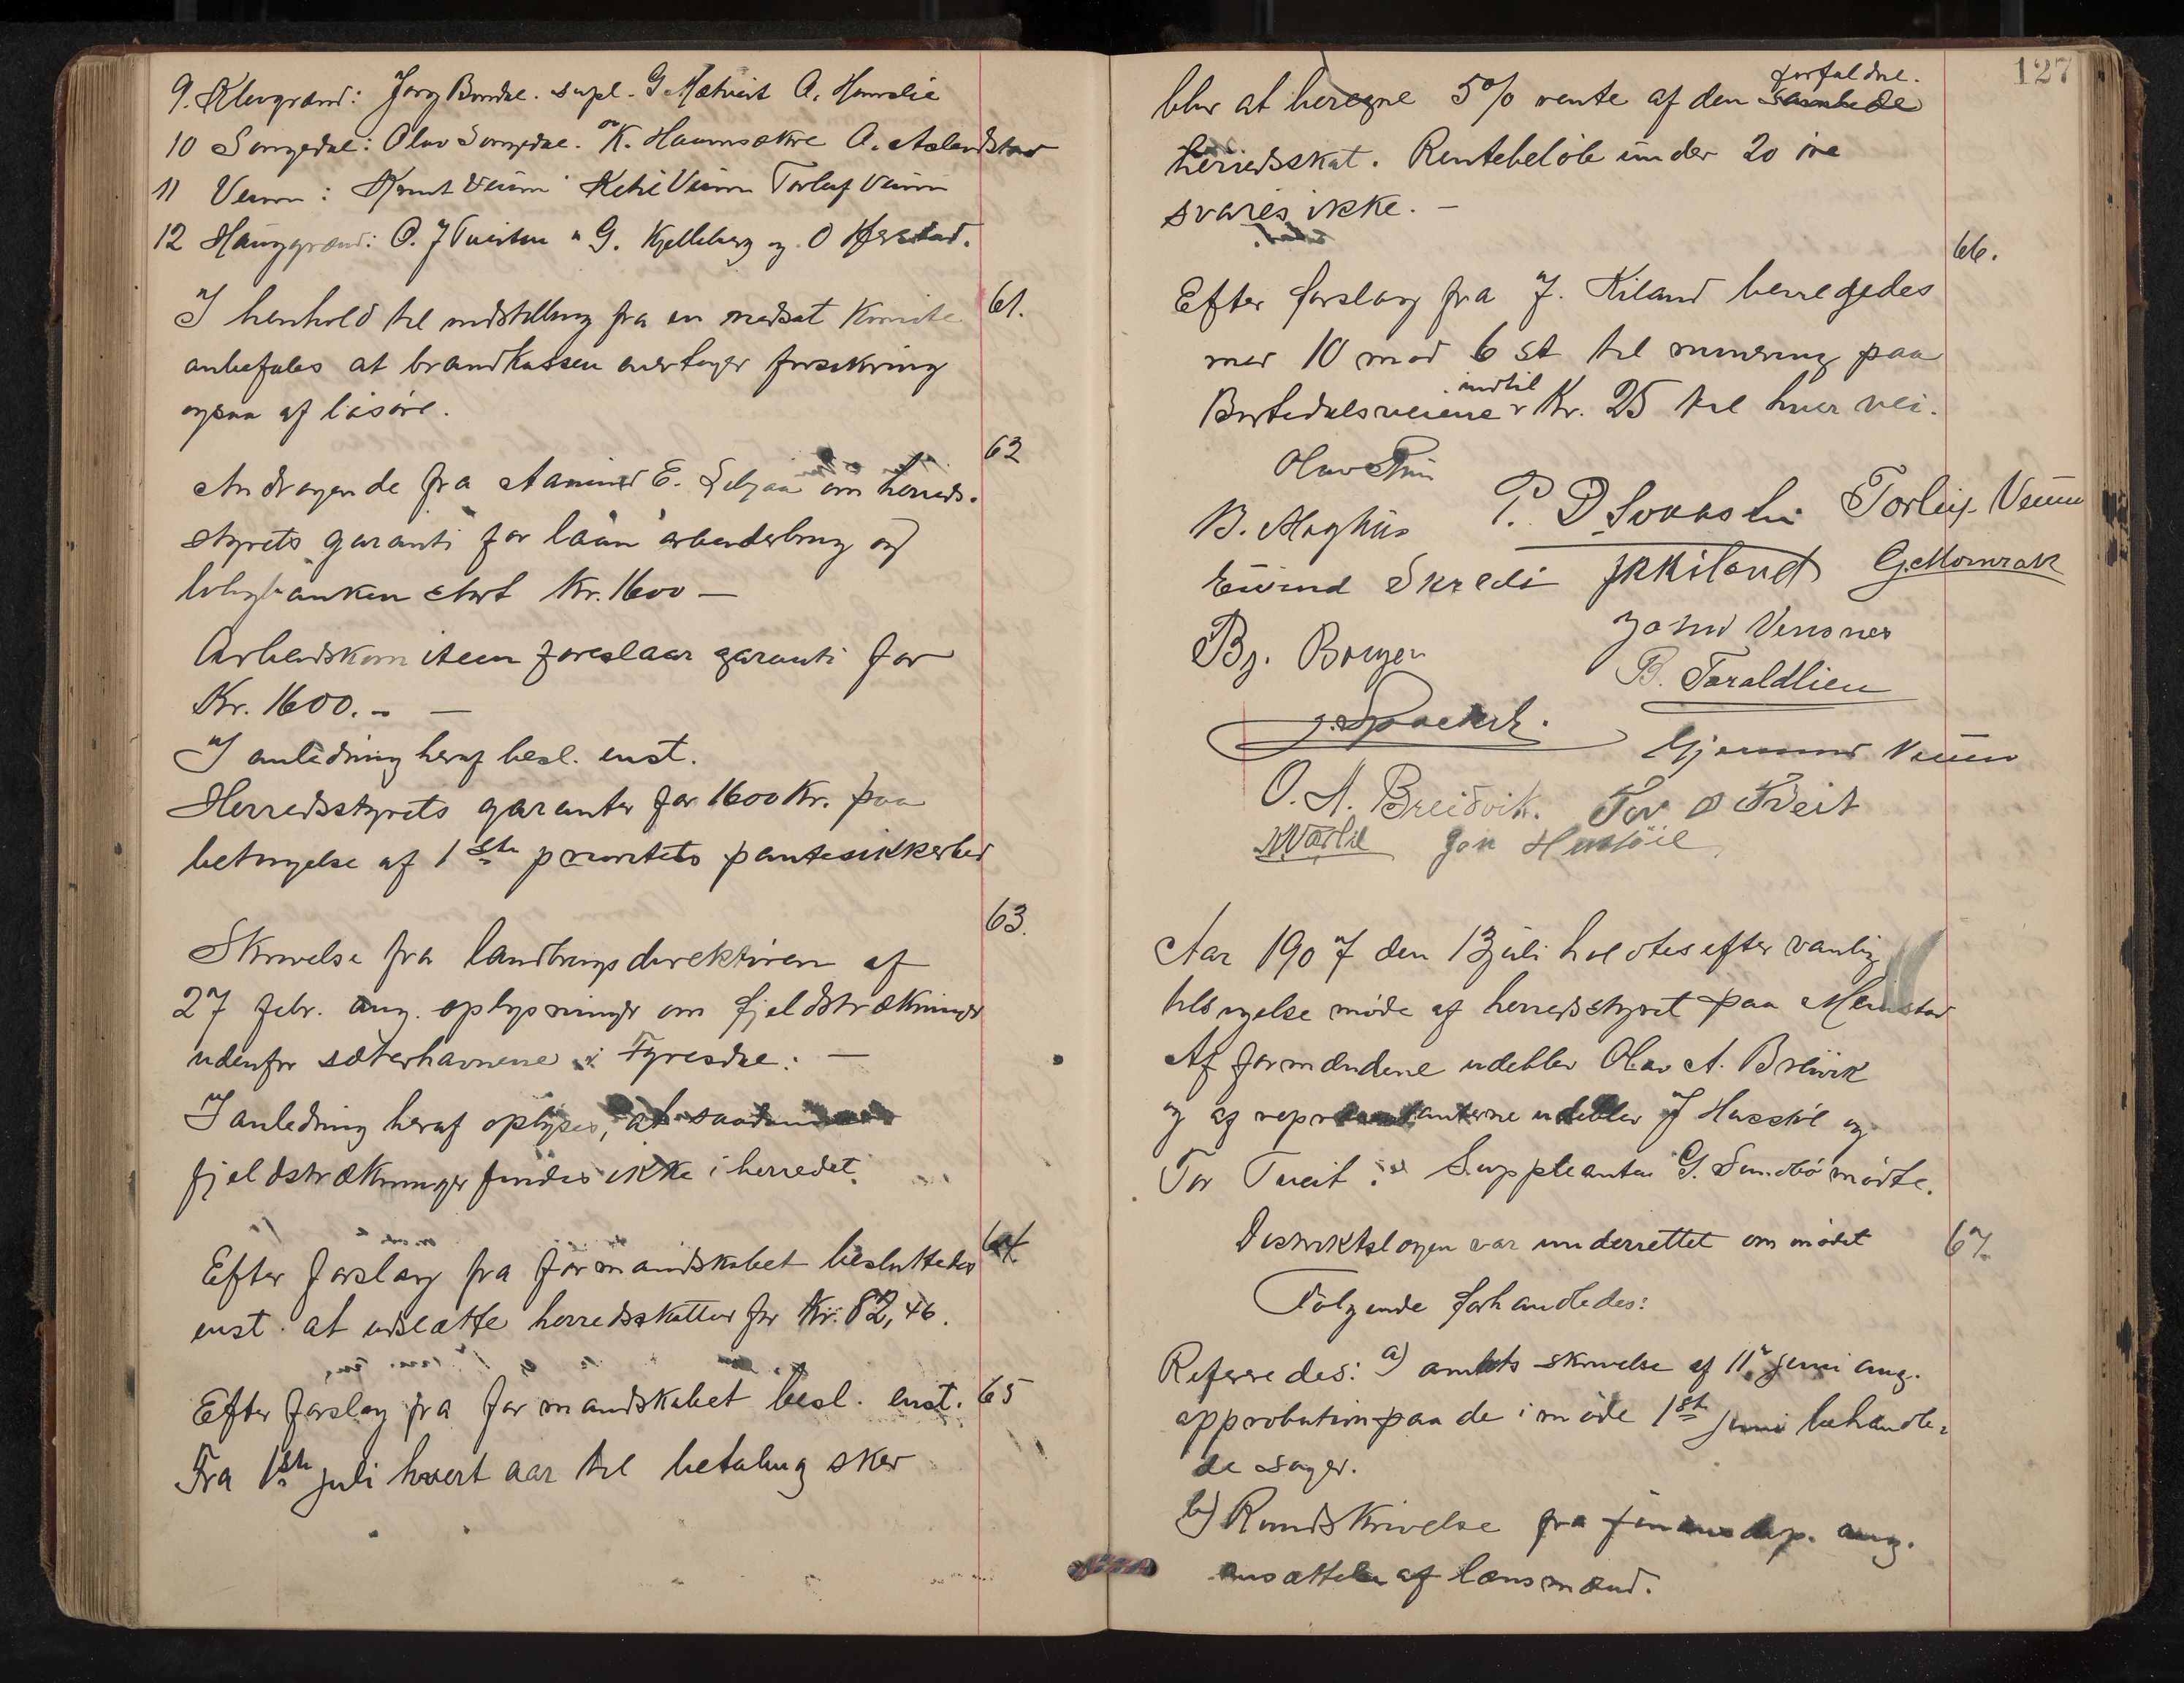 9. Klevgrænd: Jørg Bondal. supl. G Mætveit A.
10 Songedal: Olav Songedal. " K. Haumsækre A. Aslandstad
11 Veum: Knut Veum Ketil Veum Torleif Veum
12 Hauggrænd: O. J Tveiten " G. Kjelleberg og O
61.
I henhold til indstilling fra en nedsat Komite
anbefales at brandkassen overtager forsikring
ogsaa af løsøre.
62
Andragende fra Aamund E. om herreds-
styrets garanti for laan arbeiderbrug og
boligbanken stort Kr. 1600 —
Arbeidskomiteen foreslaar garanti for
Kr. 1600. – —
I anledning heraf besl. enst.
Herredsstyrets garanter for 1600 Kr. paa
betingelse af 1ste prioritets pantesikkerhed
63.
Skrivelse fra landbrugsdirektøren af
27 febr. ang. oplysninger om fjeldstrækninger
udenfor sæterhavnene i Fyresdal: —
I anledning heraf oplyses, at saadanne
fjeldstrækninger findes ikke i herredet.
64.
Efter forslag fra formandskabet besluttedes
enst. at udsætte herredsskatter for Kr. 82,46.
Efter forslag fra formandskabet besl. enst. 65
Fra 1ste juli hvert aar til betaling sker
127
forfaldne.
blir at beregne 5% rente af den samlede
herredsskat. Rentebeløb under 20 øre
svares ikke. —
66.
Efter forslag fra J. Kiland bevilgedes
med 10 mod 6 st til minering paa
indtil
Birtedalsveiene Kr. 25 til hver vei.
Olav
B. Moghus P. D Torleif Veum
Eivind Skredi JKKiland G. Momrak
Bj. Borgen
B. Taraldlien
Gjermund Veum
O. A. Breidvik. Tor O Tveit
Jon
Aar 1907 den 13 juli holdtes efter vanlig
tilsigelse møde af herredsstyret paa Meinstad
Af formændene udeblev Olav A. Breivik
og af repræsentanterne udeblev J Husstøl og
Tor Tveit. Suppleanten G. Sundbø mødte.
Distriktslægen var underrettet om mødet 67
Følgende forhandledes:
Refereredes: a) amtets skrivelse af 11te juni ang.
approbation paa de i møde 1ste juni behandle-
de sager.
b) Rundskrivelse fra finansdep. ang.
ansættelse af lænsmænd.